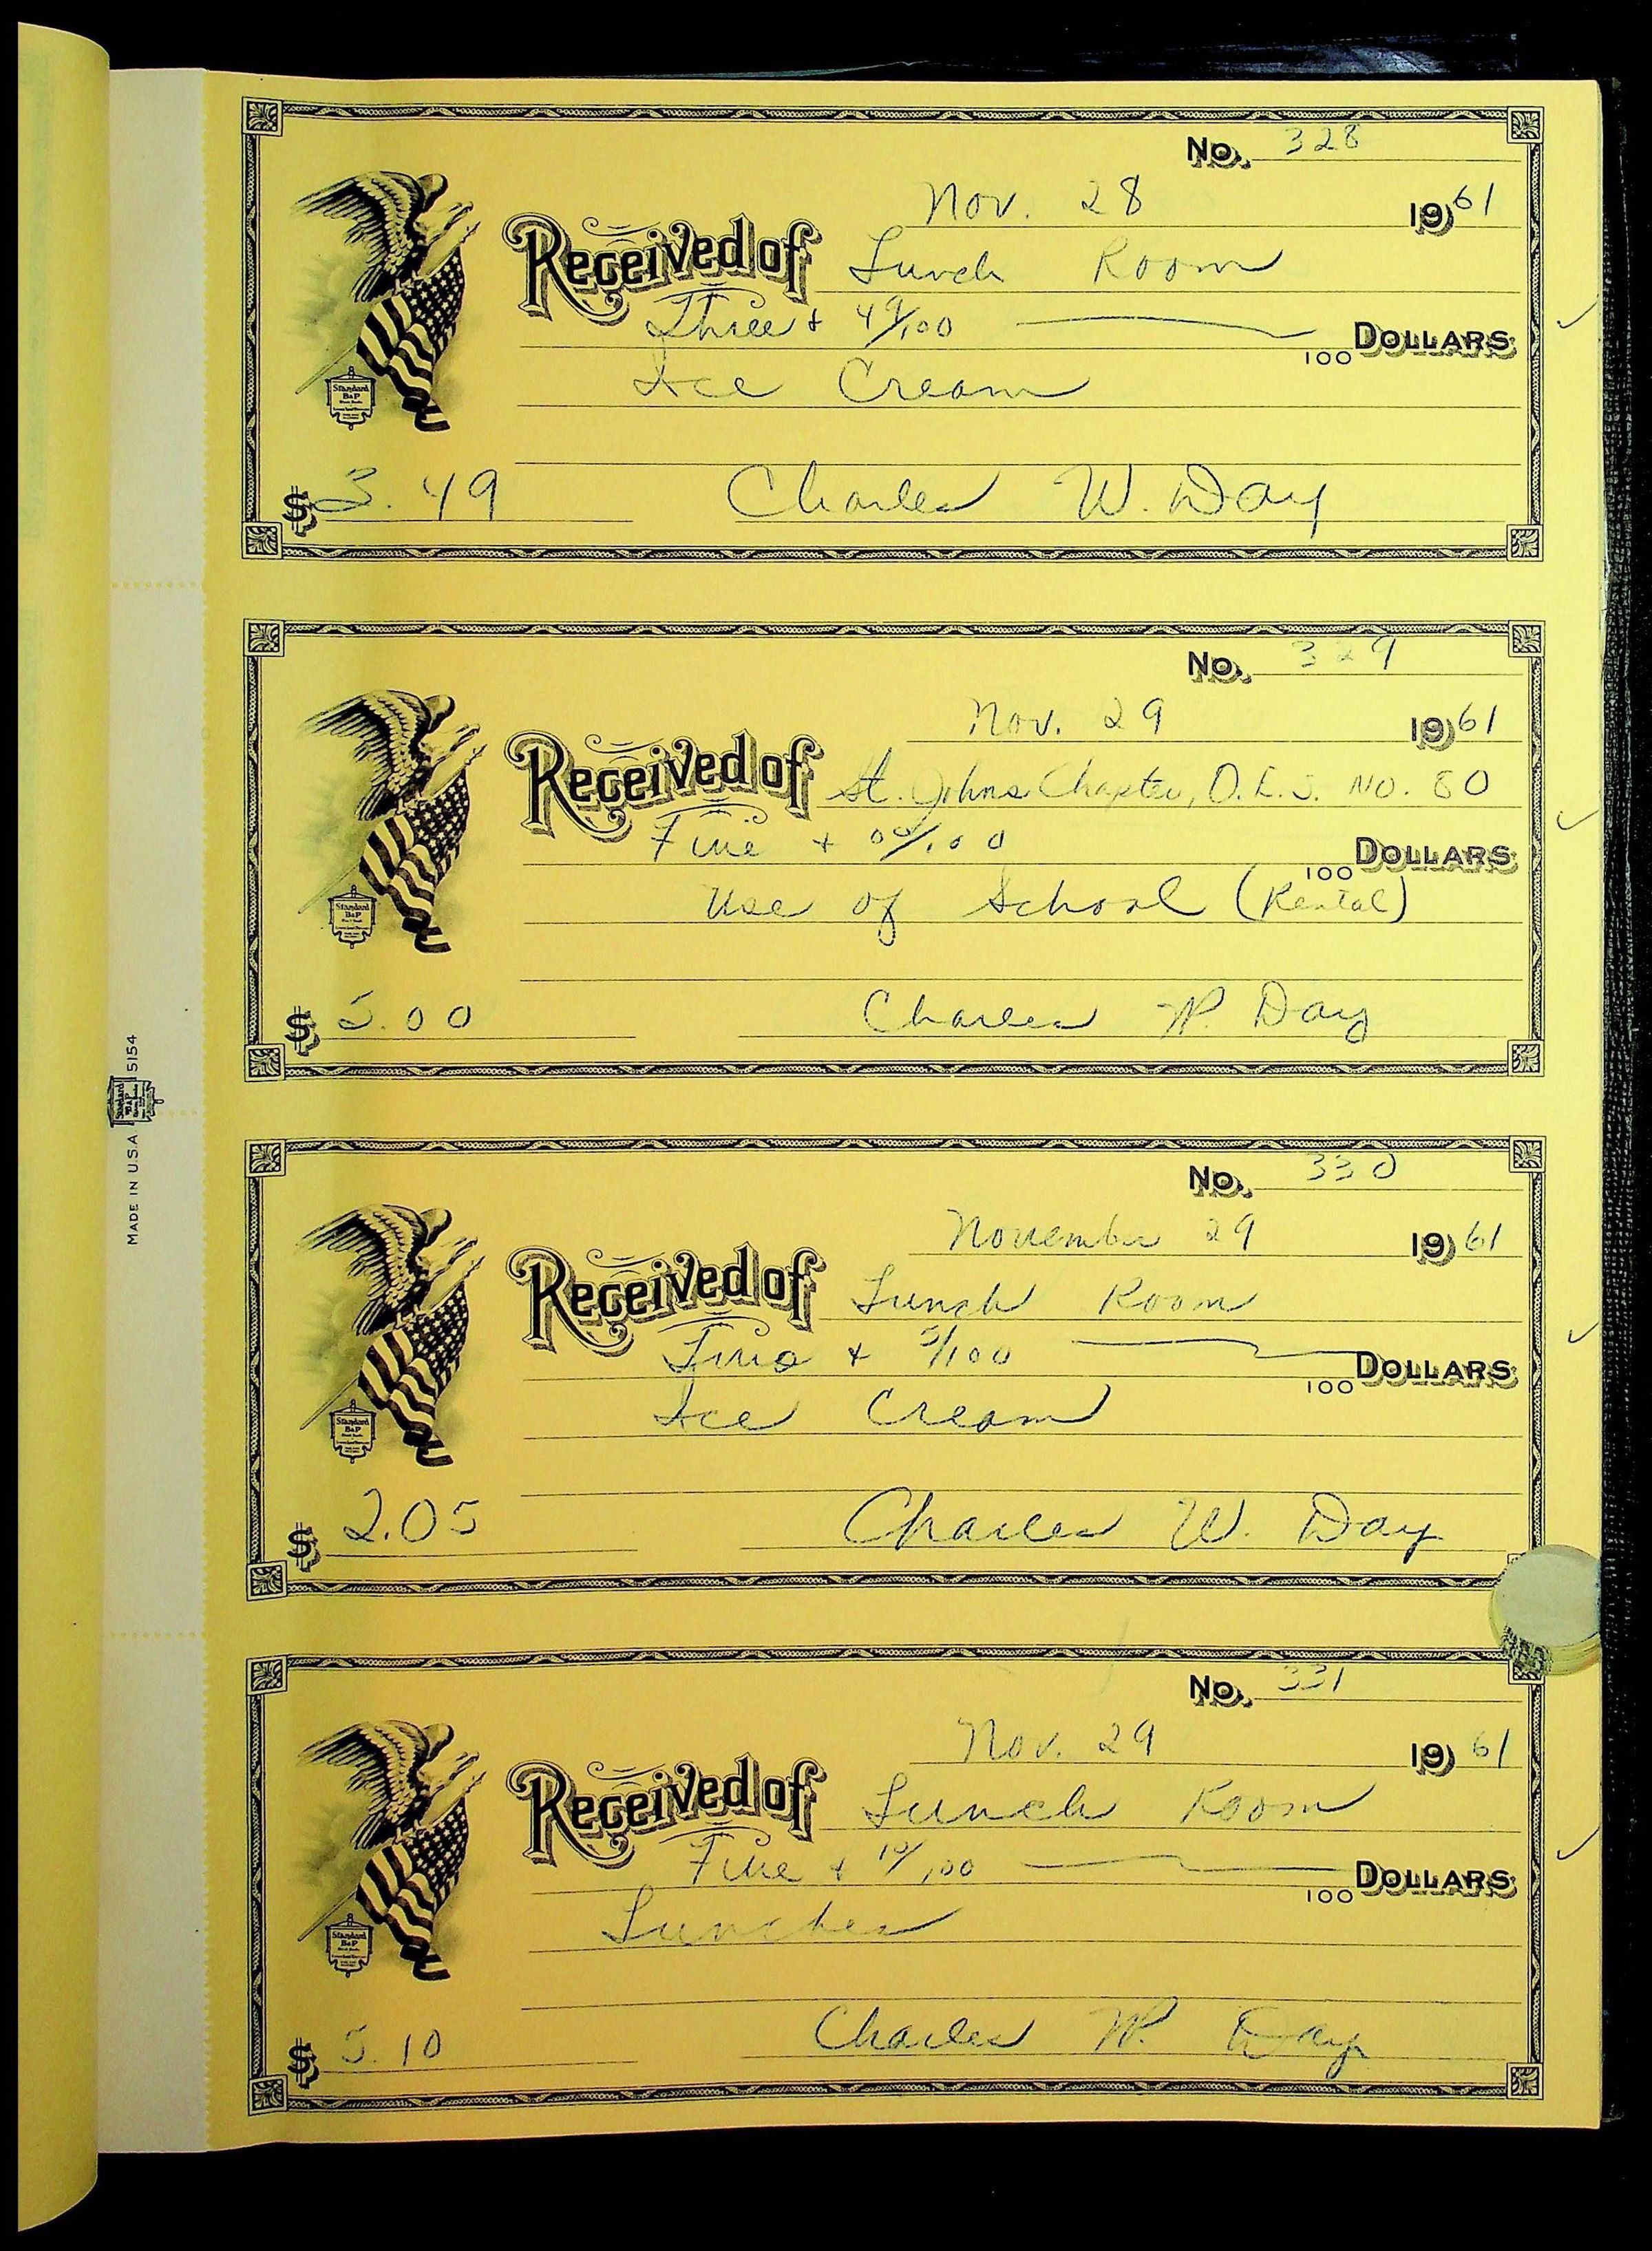 No. 328
Nov. 28 1961
Received of Lunch Room
Three + 49/100 100 DOLLARS
Ice Cream
$ 3.49 Charles W. Day
Standard
B&P
No. 329
Nov. 29 1961
Received of St. Johns Chapter, O.E.S. NO. 80
Five + 00/100 100 DOLLARS
Use of School (Rental)
$ 5.00 Charles W. Day
Standard
B&P
MADE IN U.S.A. Standard B&P 5154
No. 330
November 29 1961
Received of Lunch Room
Two + 5/100 100 DOLLARS
Ice Cream
$ 2.05 Charles W. Day
Standard
B&P
No. 331
Nov. 29 1961
Received of Lunch Room
Five + 10/100 100 DOLLARS
Lunches
$ 5.10 Charles W. Day
Standard
B&P